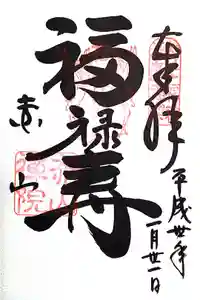 奉拝
平成丗年
一月廿一日
福禄寿
赤山